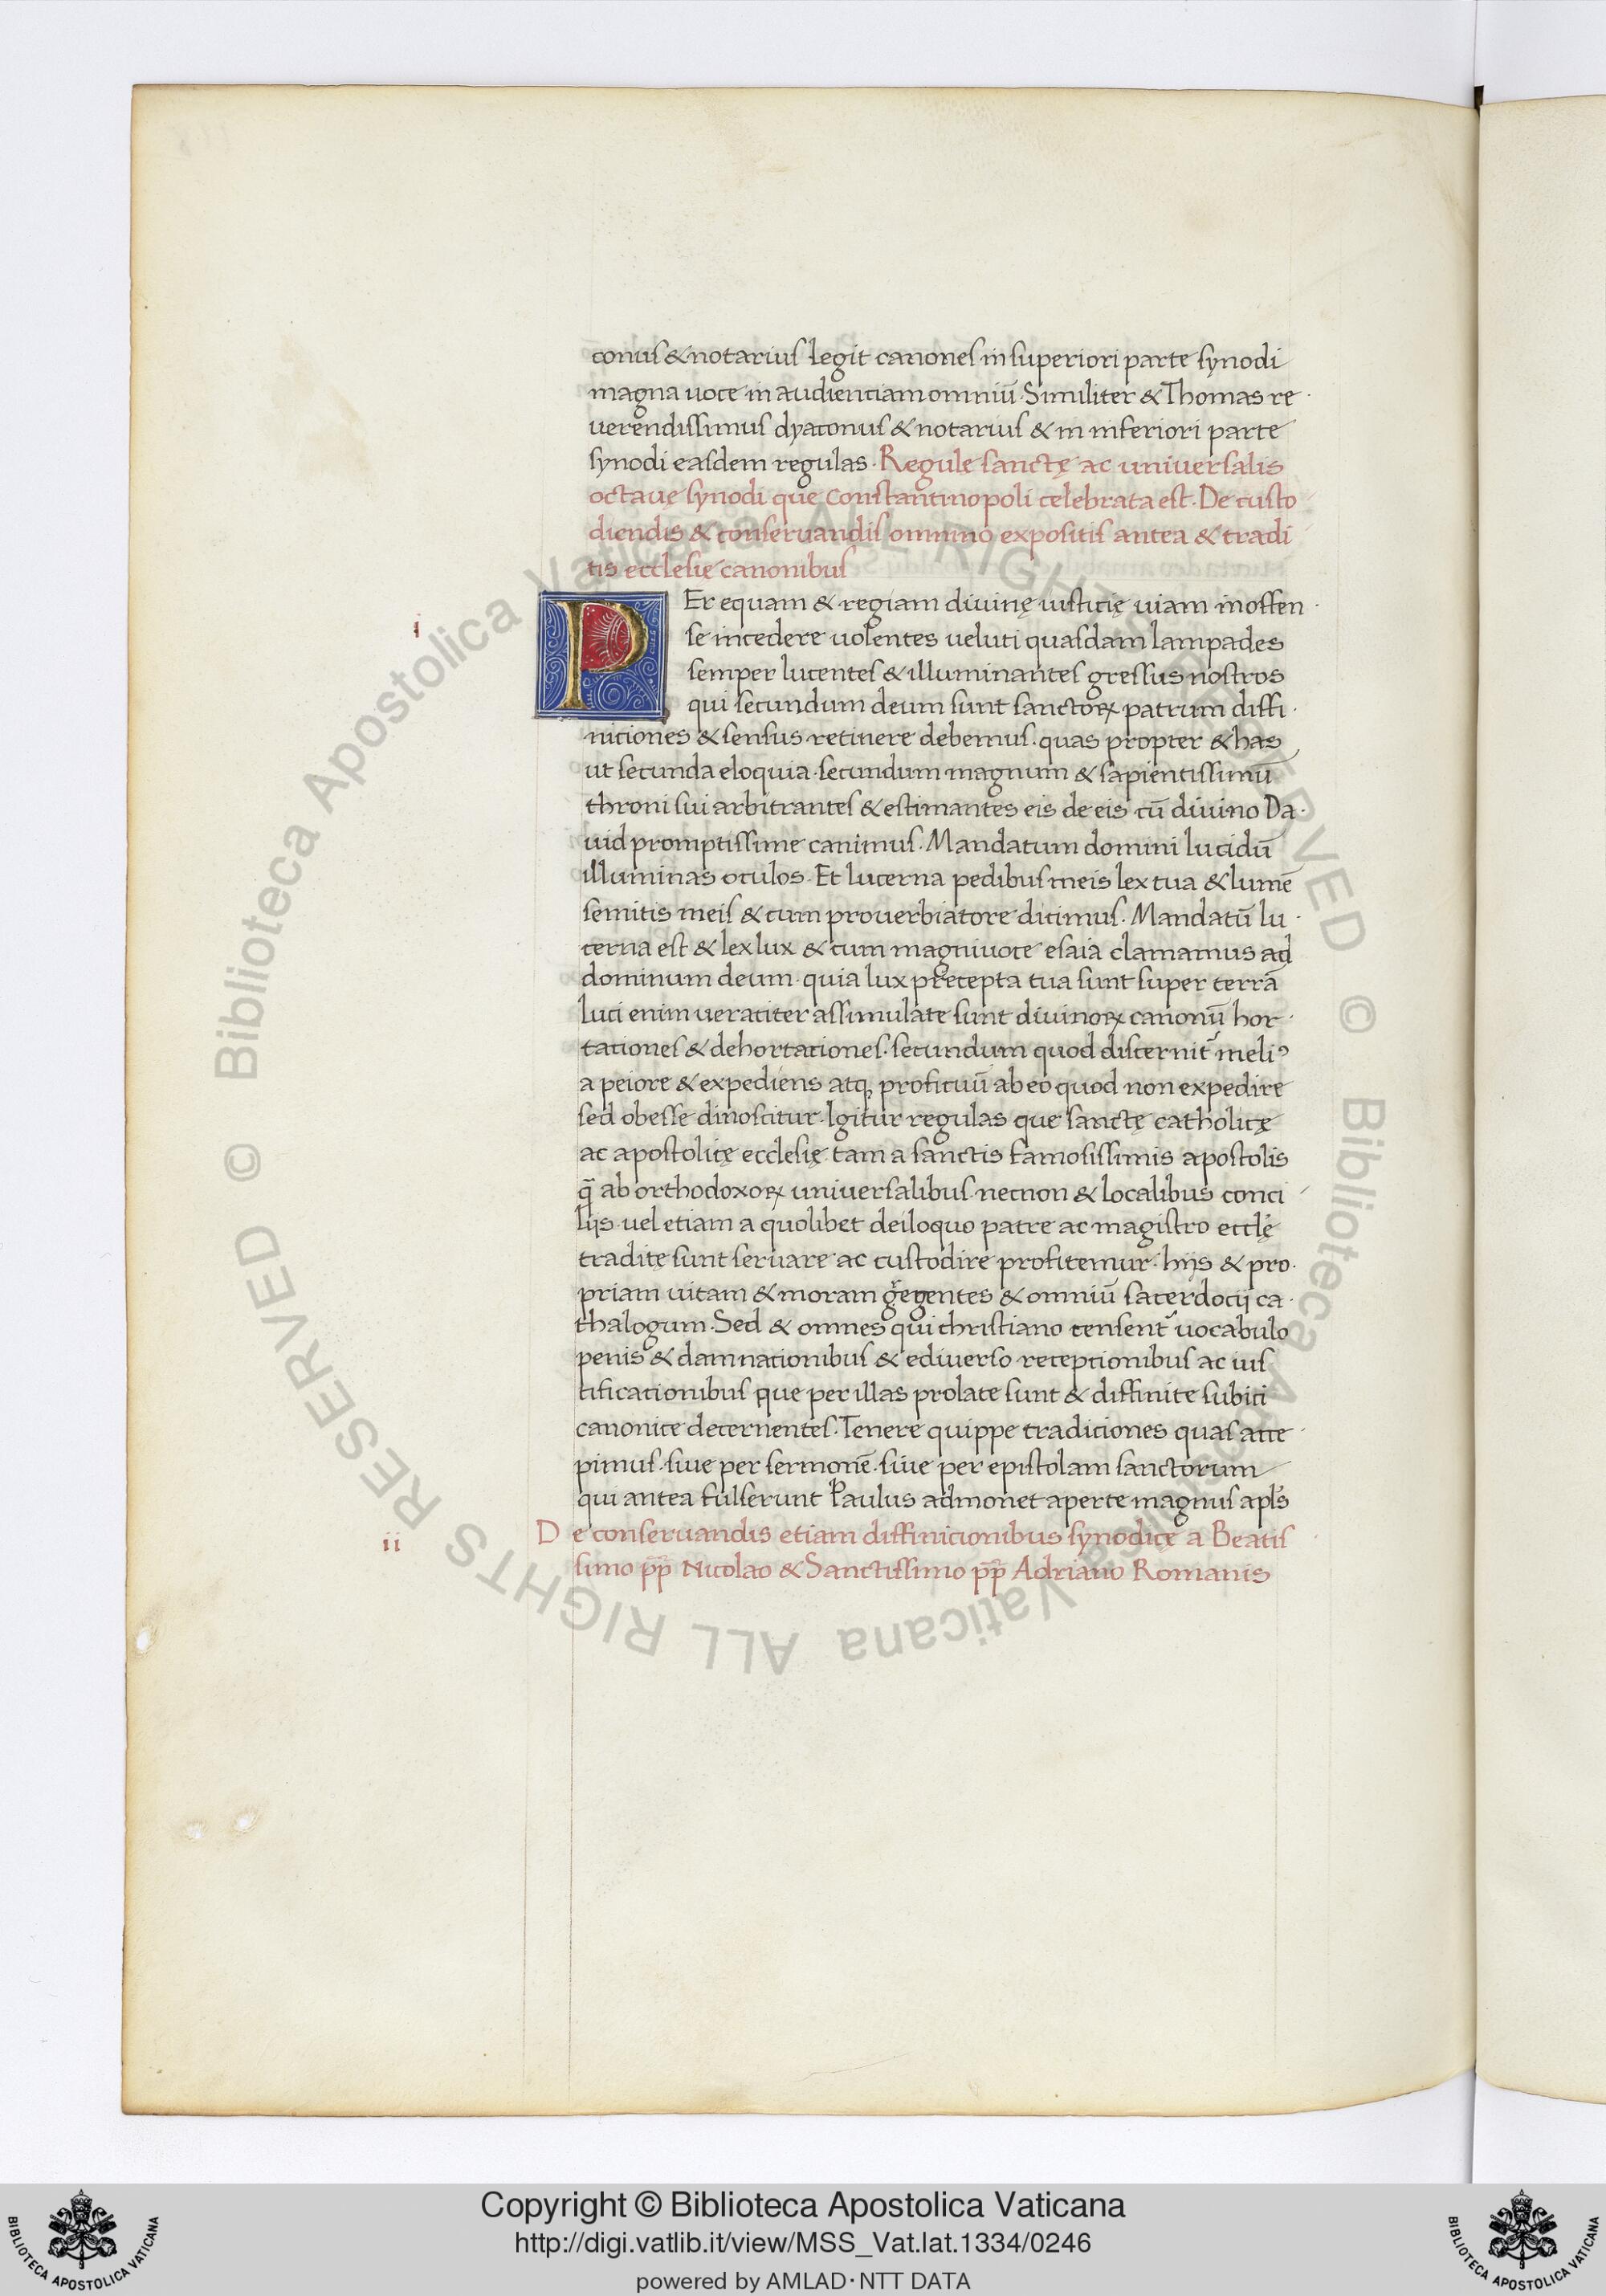 conus & notarius legit canones in superiori parte synodi
magna uoce in audienciam omniū. Similiter & Thomas re
uerendissimus dyaconus & notarius & in inferiori parte
synodi easdem regulas. Regule sanctę ac uniuersalis
octauę synodi que Constantinopoli celebrata est. De custo
diendis & conseruandis omnino expositis antea & tradi
tis ecclesię canonibus
i
PEr equam & regiam diuinę iusticię uiam inoffen
se incedere uolentes ueluti quasdam lampades
semper lucentes & illuminantes gressus nostros
qui secundum deum sunt sanctoꝝ patrum diffi
niciones & sensus retinere debemus. quas propter & has
ut secunda eloquia. secundum magnum & sapientissimū
throni sui arbitrantes & estimantes eis de eis cū diuino Da
uid promptissime canimus. Mandatum domini lucidū
illuminas oculos. Et lucerna pedibus meis lex tua & lumē
semitis meis & cum prouerbiatore dicimus. Mandatū lu
cerna est & lex lux & cum magniuoce esaia clamamus ad
dominum deum. quia lux precepta tua sunt super terrā
luci enim ueraciter assimulate sunt diuinoꝝ canonū hor
tationes & dehortationes. secundum quod discernit᷑ meliꝰ
a peiore & expediens atq; proficuū ab eo quod non expedire
sed obesse dinoscitur. Igitur regulas que sanctę catholicę
ac apostolicę ecclesię tam a sanctis famosissimis apostolis
q̄ ab orthodoxoꝝ uniuersalibus. necnon & localibus conci
lijs. uel etiam a quolibet deiloquo patre ac magistro ecclę
traditę sunt seruare ac custodire profitemur. hijs & pro
priam uitam & moram gegentes & omniū sacerdocij ca
thalogum. Sed & omnes qui christiano censent᷑ uocabulo
penis & damnationibus & ediuerso receptionibus ac ius
tificationibus que per illas prolate sunt & diffinite subici
canonice decernentes. Tenere quippe traditiones quas acce
pimus. siue per sermonē. siue per epistolam sanctorum
qui antea fulserunt Paulus admonet aperte magnus apl̄s
ii
De conseruandis etiam diffinicionibus synodicę a Beatis
simo p̄p̄ Nicolao & Sanctissimo p̄p̄ Adriano Romanis
© Biblioteca Apostolica Vaticana ALL RIGHTS RESERVED © Biblioteca Apostolica Vaticana ALL RIGHTS RESERVED
Copyright © Biblioteca Apostolica Vaticana
http://digi.vatlib.it/view/MSS_Vat.lat.1334/0246
powered by AMLAD·NTT DATA
BIBLIOTECA APOSTOLICA VATICANA
BIBLIOTECA APOSTOLICA VATICANA